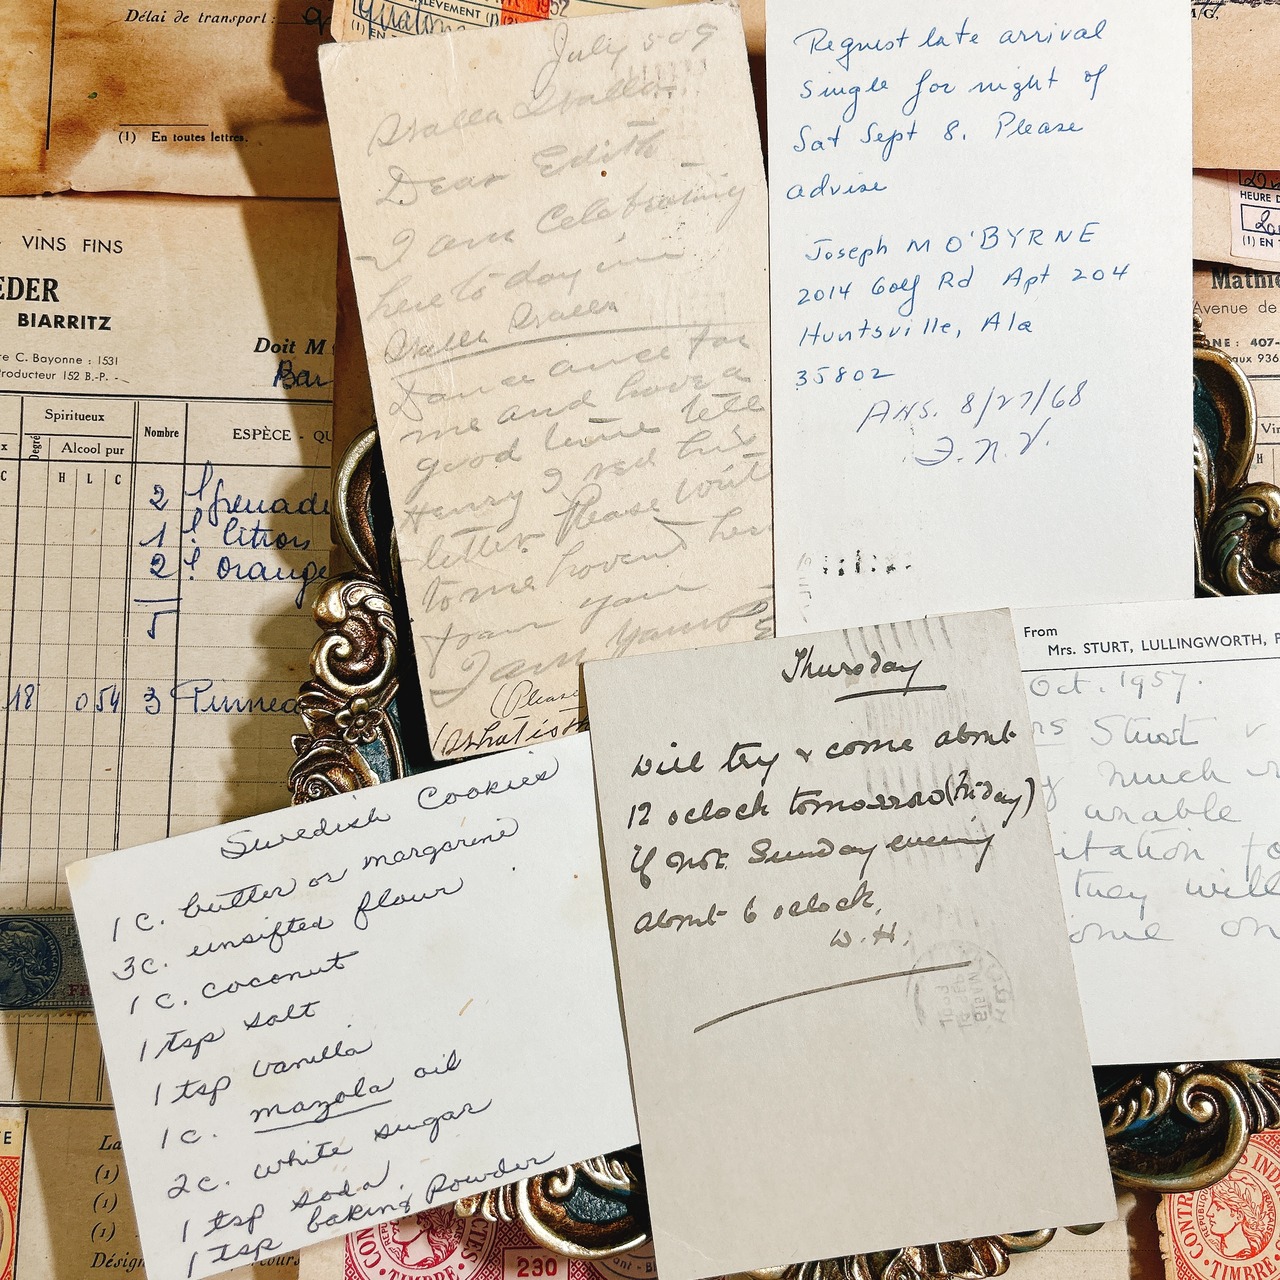 Délai de transport :
(1) En toutes lettres.
ENLÈVEMENT
1952
VINS FINS
EDER
BIARRITZ
re C. Bayonne : 1531
Producteur 152 B.-P. -
Doit M
Bar
Spiritueux
Degré
Alcool pur
H L C
Nombre
ESPÈCE - QU
2
1
2
5
18
0 54
3
July 5 09
Walla Walla
Dear Edith
I am Celebrating
here to day in
Walla Walla
Dance once for
me and have a
good time tell
Henry I red his
letter Please
to me
from your
I am yours
(Please
What is th
Request late arrival
single for night of
Sat Sept 8. Please
advise
Joseph M O'BYRNE
2014 Golf Rd Apt 204
Huntsville, Ala
35802
ANS. 8/27/68
F.N.V.
HEURE D
(1) EN
Mathi
Avenue de
ONE : 407-
aux 936
From
Mrs. STURT, LULLINGWORTH, P
Oct. 1957.
rs Sturt
y much
unable
itation fo
they will
ome on
Thursday
Will try & come about
12 oclock tomorrow (Friday)
if not Sunday evening
about 6 oclock.
W.H.
Swedish Cookies
1 c. butter or margarine
3c. unsifted flour
1 c. coconut
1 tsp salt
1 tsp vanilla
1c. mazola oil
2c. white sugar
1 tsp soda
1 tsp baking Powder
La
(1)
(1)
(1)
Désign
cours
TIMBRE
230
CONTR
TIMBRE